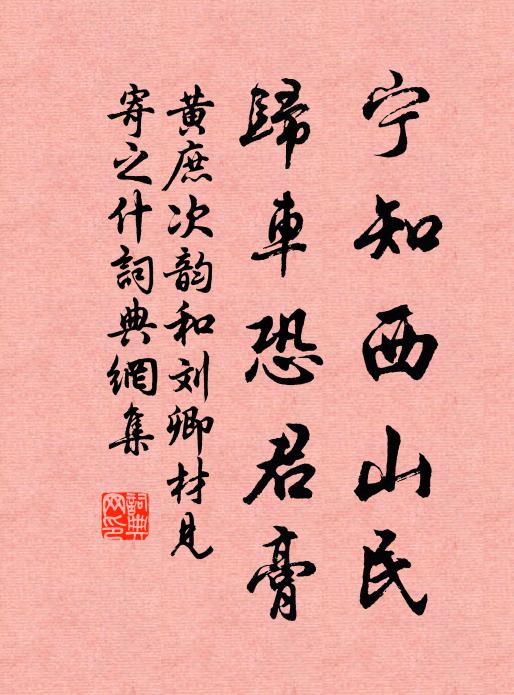 宁知西山民
歸車恐君膏
黄庶次韵和刘卿材見
寄之什詞典網集
詞典
网印